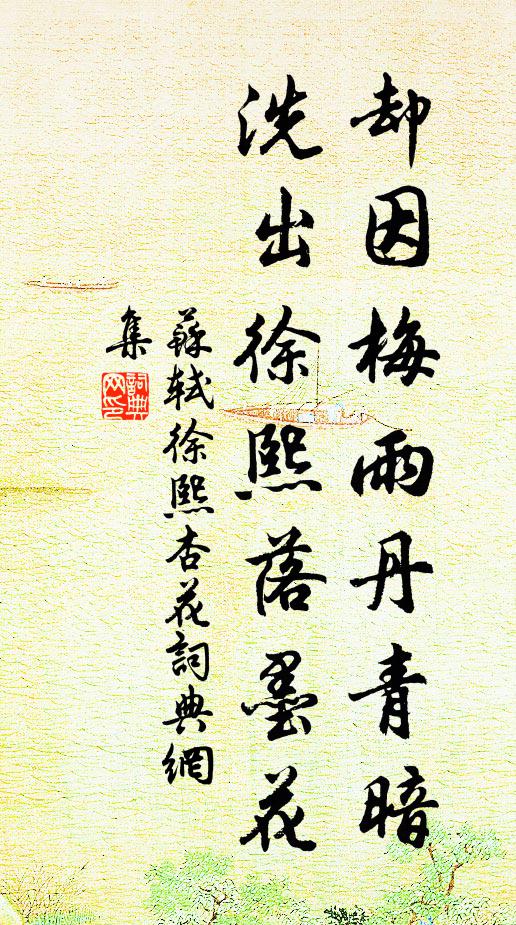 却因梅雨丹青暗
洗出徐熙落墨花
蘇軾徐熙杏花詞典網
集
詞典
网印